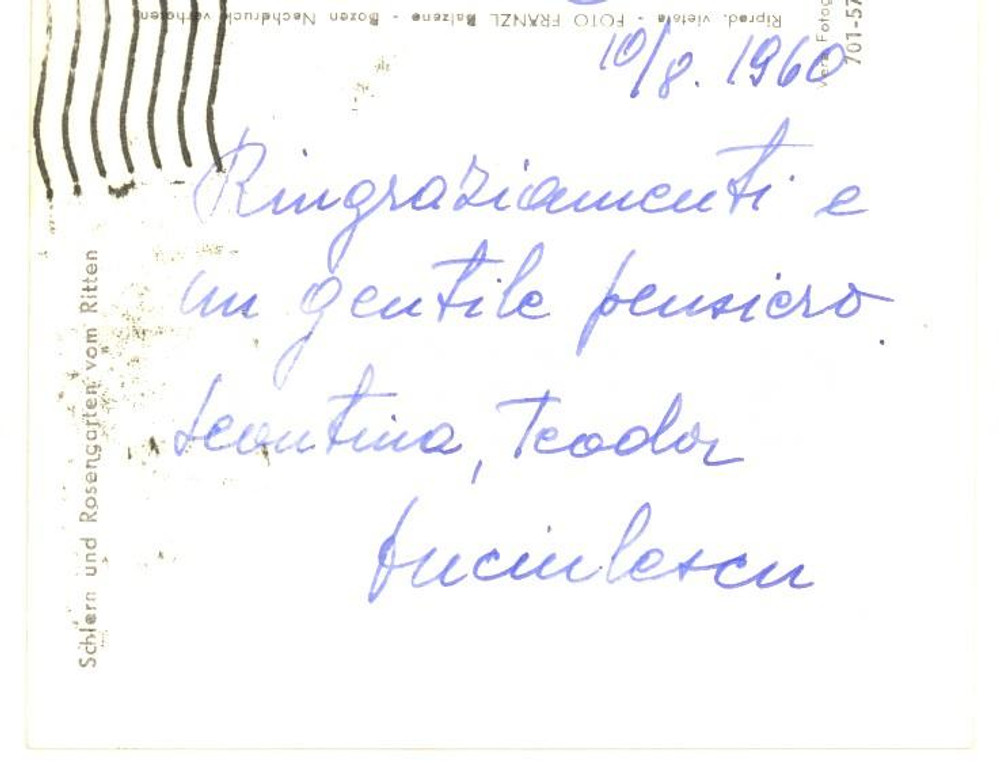 Riprod. vietata - FOTO FRÄNZL Bolzano - Bozen Nachdruck verboten
701-57
10/8. 1960
Ringraziamenti e
un gentile pensiero
Leontina, Teodor
Schlern und Rosengarten vom Ritten